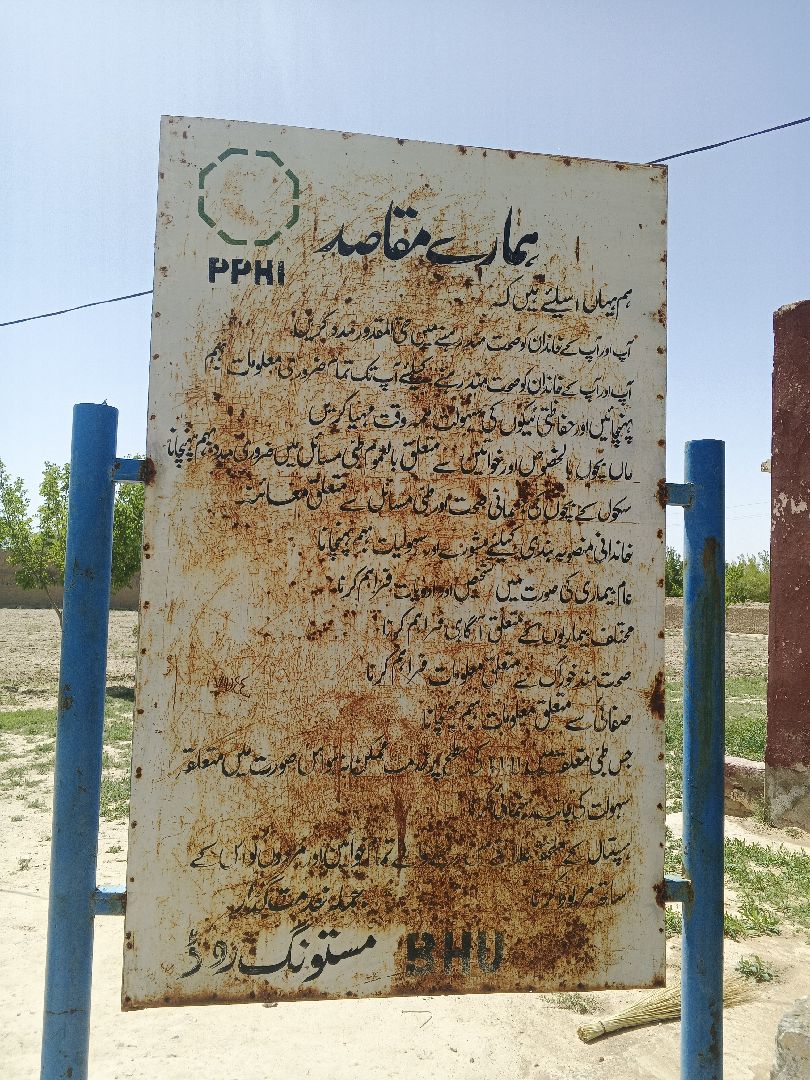 PPHI
ہمارے مقاصد
ہم یہاں اسلئے ہیں کہ
آپ اور آپ کے خاندان کو صحت مند رہنے میں حتی المقدور مدد کریں۔
آپ اور آپ کے خاندان کو صحت مند رہنے کیلئے آپ تک تمام ضروری معلومات بہم
پہنچائیں اور حفاظتی ٹیکوں کی سہولت ہمہ وقت مہیا کریں
ماں بچوں بالخصوص اور خواتین سے متعلق بالعموم طبی مسائل میں ضروری مدد بہم پہنچانا
سکول کے بچوں کی جسمانی صحت اور طبی مسائل سے متعلق معائنہ
خاندانی منصوبہ بندی کیلئے مشورے اور سہولیات بہم پہنچانا
عام بیماری کی صورت میں تشخیص اور ادویات فراہم کرنا
مختلف بیماریوں کے متعلق آگاہی فراہم کرنا
صحت مند خوراک سے متعلق معلومات فراہم کرنا
صفائی سے متعلق معلومات بہم پہنچانا
جس طبی کی سطح پر خدمت ممکن نہ ہو اس صورت میں متعلقہ
سہولت کی جانب رہنمائی کرنا
ہسپتال کے تمام خواتین اور مردوں کو اس کے
ساتھ مربوط کرنا
جملہ خدمت گزار
BHU مستونگ روڈ